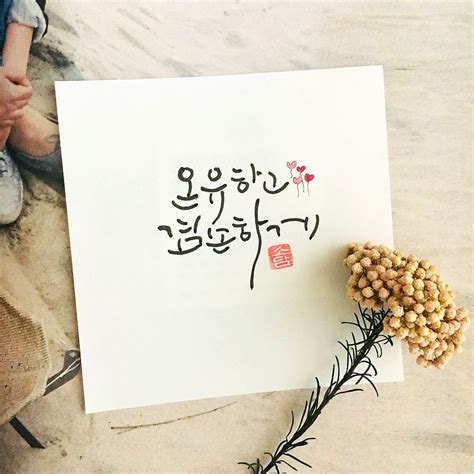 온유하고
겸손하게